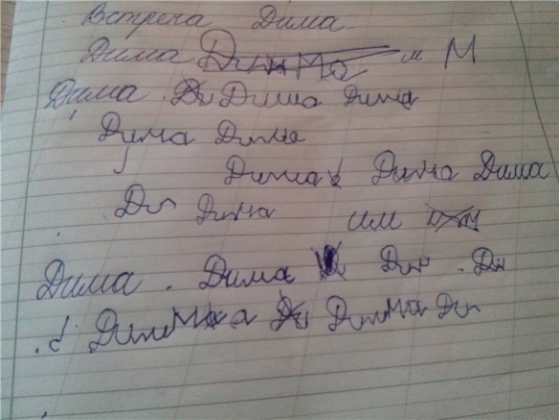 Встреча Дима
Дима м М
Дима Ди Диша Дима
Дима Дима
Дима Дима Дима
Ди Дима им
Дима . Дима Ди . Ди
Дим а Дима Ди